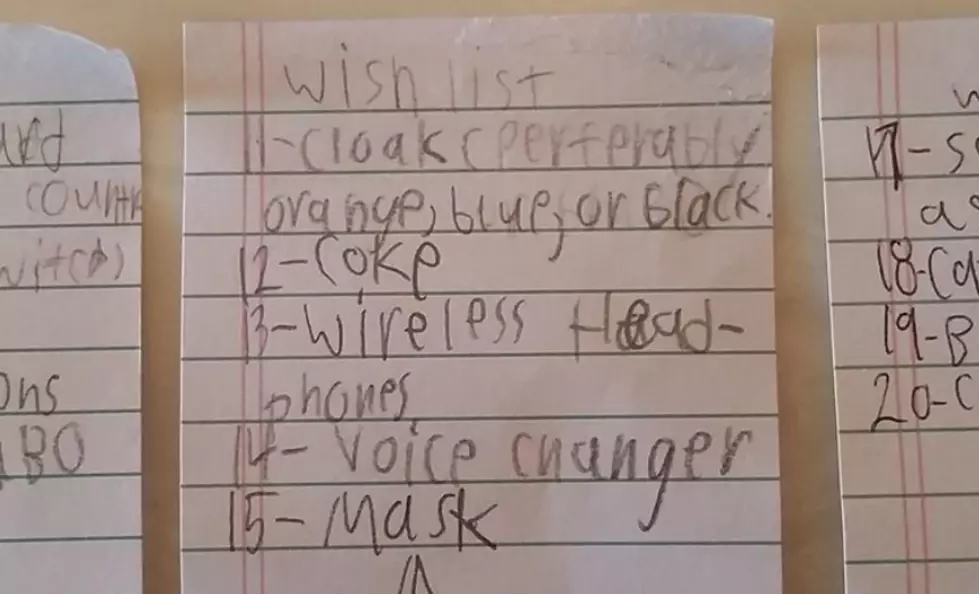 wish list
11-cloak (perferably
orange, blue, or black.
12-Coke
13-wireless Head-
phones
14- voice changer
15-Mask
ons
BO
17-
18-
19-B
20-C